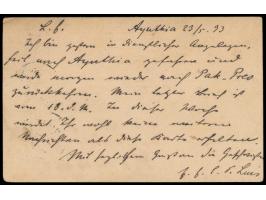 L. G. Ayuthia 23/5. 93
Ich bin gestern in dienstlicher Angelegen,
heit nach Ayuthia gefahren und
werde morgen wieder nach Pak. Preo
zurückkehren. Mein letzter Brief ist
vom 18. d. M. In dieser Woche
wirst Ihr wohl keine weiteren
Nachrichten als diese Karte erhalten.
Mit herzlichen Grüßen die